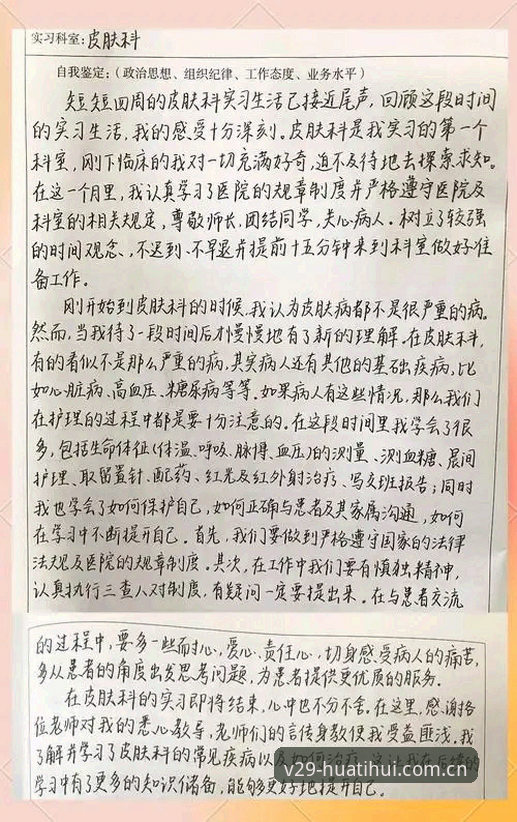 实习科室:皮肤科
自我鉴定:(政治思想、组织纪律、工作态度、业务水平)
短短四周的皮肤科实习生活已接近尾声,回顾这段时间
的实习生活,我的感受十分深刻。皮肤科是我实习的第一个
科室,刚下临床的我对一切充满好奇,迫不及待地去探索求知。
在这一个月里,我认真学习了医院的规章制度并严格遵守医院及
科室的相关规定,尊敬师长,团结同学,关心病人。树立了较强
的时间观念、不迟到、不早退并提前十五分钟来到科室做好准
备工作。
刚开始到皮肤科的时候,我认为皮肤病都不是很严重的病。
然而,当我待了一段时间后才慢慢地有了新的理解。在皮肤科,
有的看似不是那么严重的病,其实病人还有其他的基础疾病,比
如心脏病、高血压、糖尿病等等。如果病人有这些情况,那么我们
在护理的过程中都是要十分注意的。在这段时间里我学会了很
多,包括生命体征(体温、呼吸、脉搏、血压)的测量、测血糖、晨间
护理、取留置针、配药、红光及红外射治疗、写交班报告;同时
我也学会了如何保护自己,如何正确与患者及其家属沟通,如何
在学习中不断提升自己。首先,我们要做到严格遵守国家的法律
法规及医院的规章制度。其次,在工作中我们要有慎独精神,
认真执行三查八对制度,有疑问一定要提出来。在与患者交流
的过程中,要多一些耐心、爱心、责任心,切身感受病人的痛苦,
多从患者的角度出发思考问题,为患者提供更优质的服务。
在皮肤科的实习即将结束,心中也不分不舍。在这里,感谢各
位老师对我的悉心教导,老师们的言传身教使我受益匪浅。我
了解并学习了皮肤科的常见疾病以及如何治疗,这让我在后续的
学习中有了更多的知识储备,能够更好地提升自己。
v29-huatihui.com.cn